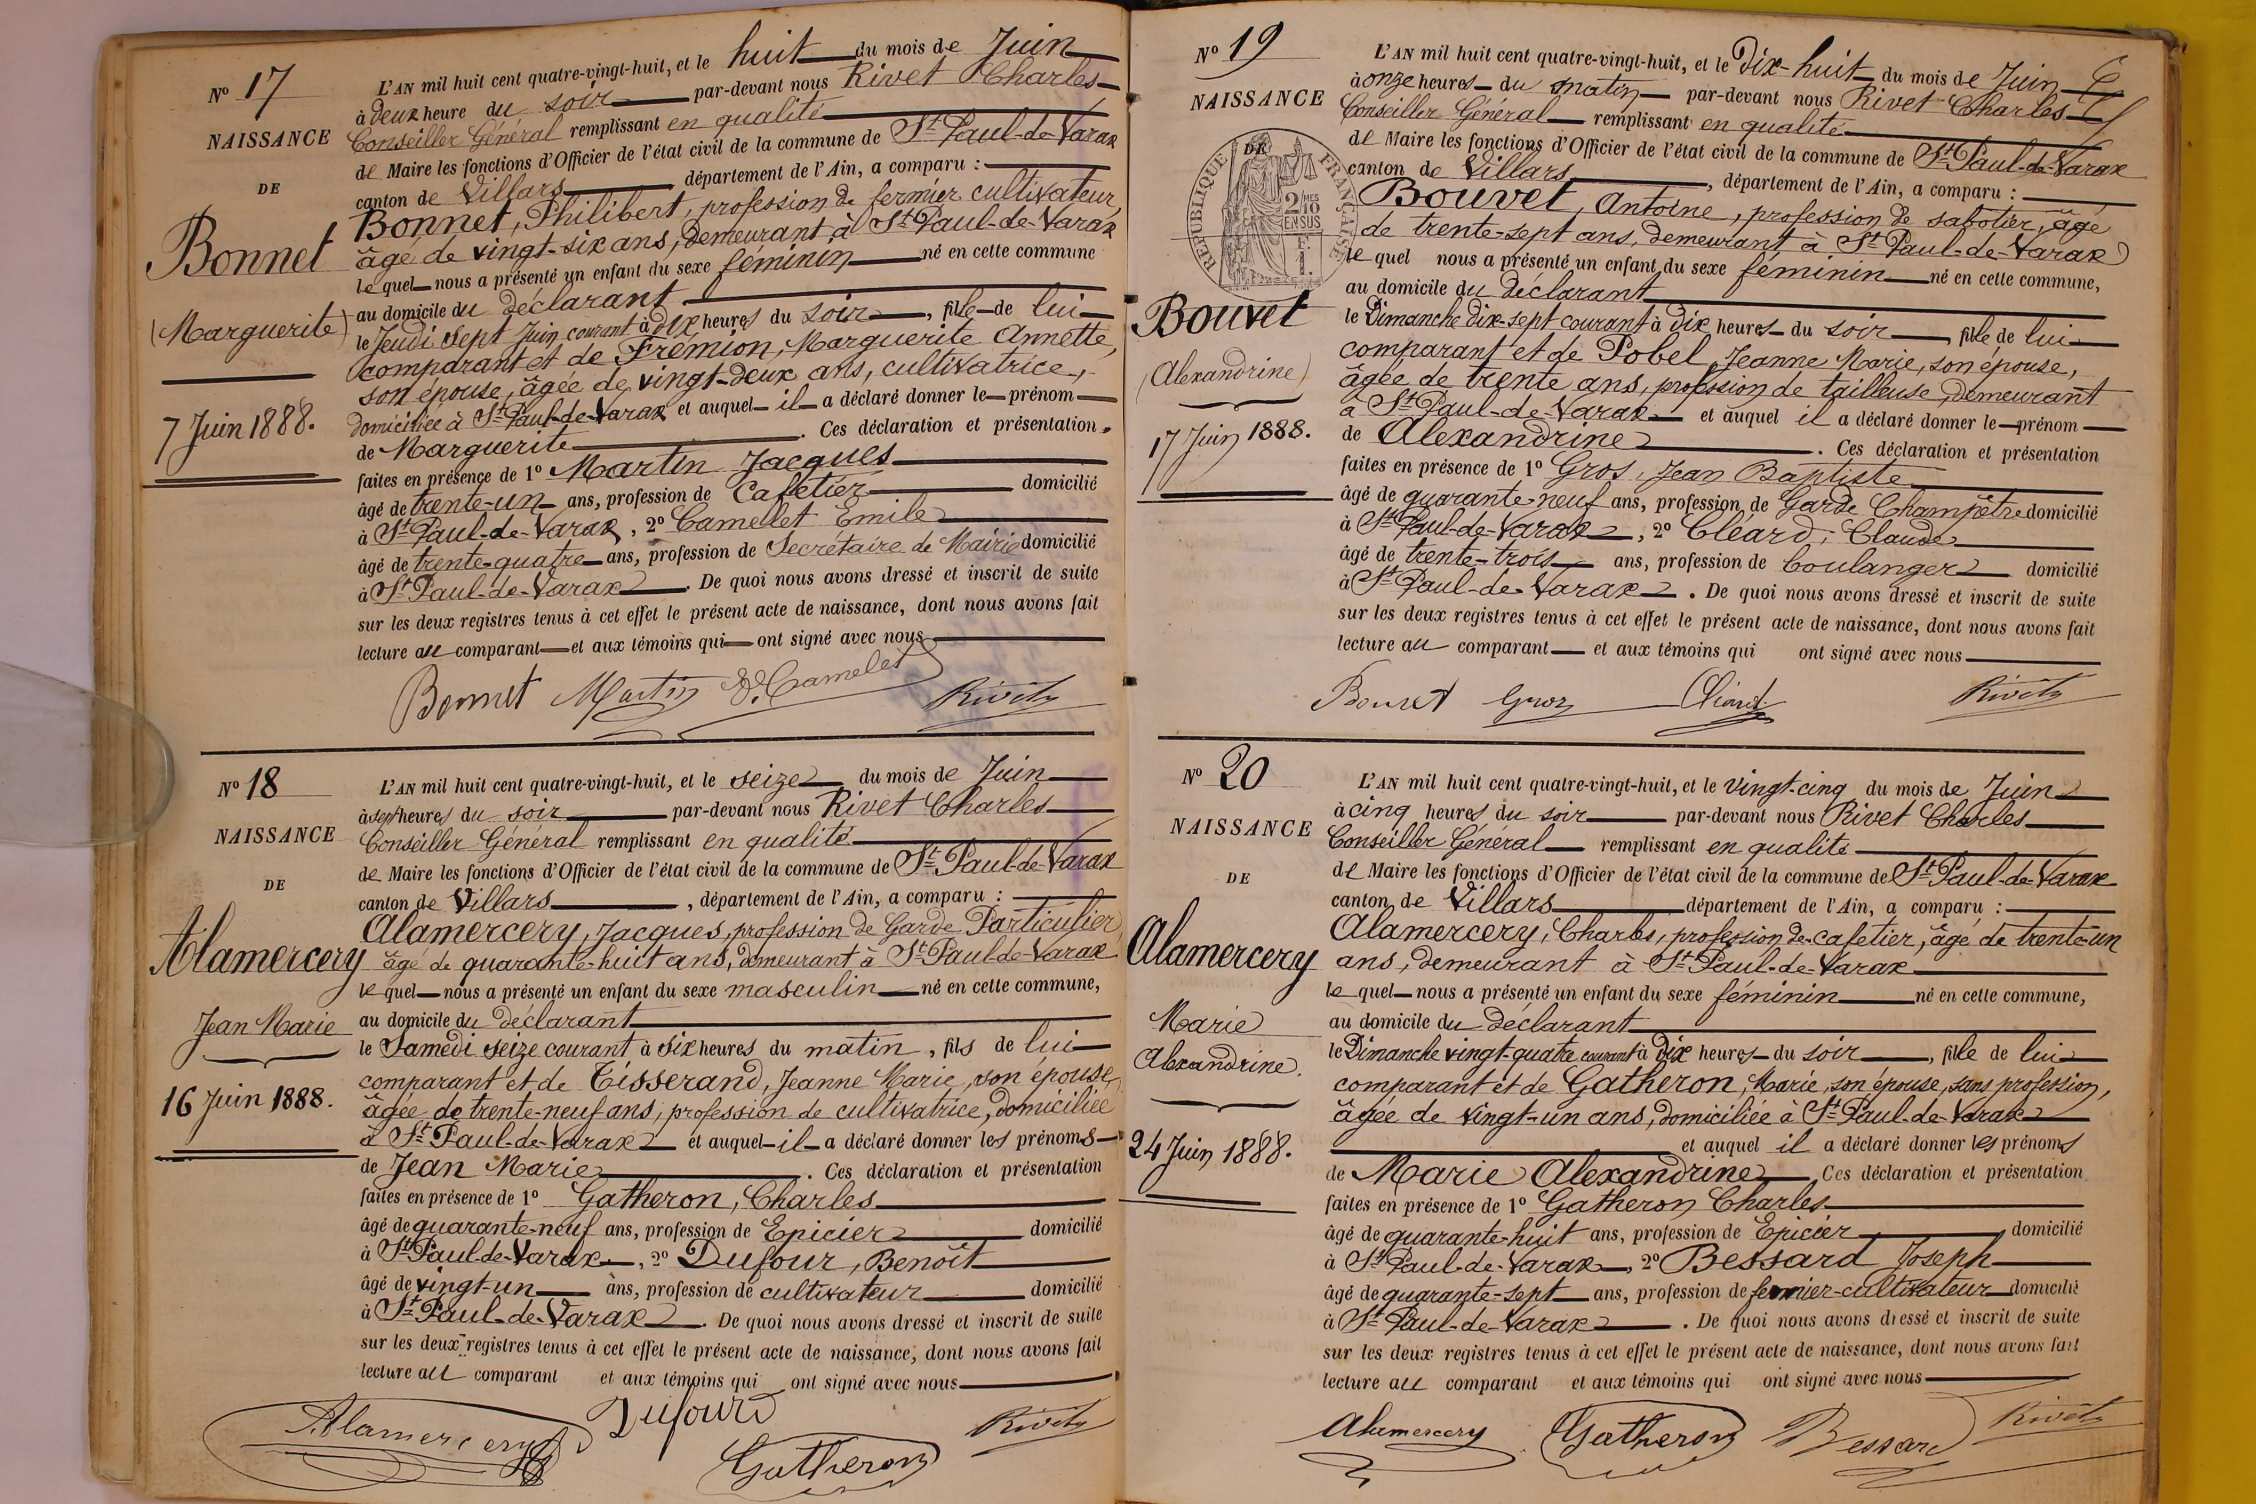 N° 17
NAISSANCE
DE
Bonnet
(Marguerite)
7 Juin 1888.
L'AN mil huit cent quatre-vingt-huit, et le huit du mois de Juin
à deux heure du soir par-devant nous Rivet Charles
Conseiller Général remplissant en qualité
de Maire les fonctions d'Officier de l'état civil de la commune de St Paul-de-Varax
canton de Villars département de l'Ain, a comparu :
Bonnet, Philibert, profession de fermier cultivateur,
âgé de vingt-six ans, demeurant à St Paul-de-Varax
le quel nous a présenté un enfant du sexe féminin né en cette commune
au domicile du déclarant
le Jeudi sept Juin courant à dix heures du soir, fille de lui
comparant et de Frémion, Marguerite Annette,
son épouse, âgée de vingt-deux ans, cultivatrice,
domiciliée à St Paul-de-Varax et auquel il a déclaré donner le prénom
de Marguerite. Ces déclaration et présentation
faites en présence de 1° Martin Jacques
âgé de trente-un ans, profession de Cafetier domicilié
à St Paul-de-Varax, 2° Camellet Emile
âgé de trente-quatre ans, profession de Secrétaire de Mairie domicilié
à St Paul-de-Varax. De quoi nous avons dressé et inscrit de suite
sur les deux registres tenus à cet effet le présent acte de naissance, dont nous avons fait
lecture au comparant et aux témoins qui ont signé avec nous
Bonnet Martin E. Camelet Rivet
N° 18
NAISSANCE
DE
Alamercery
Jean Marie
16 Juin 1888.
L'AN mil huit cent quatre-vingt-huit, et le seize du mois de Juin
à sept heures du soir par-devant nous Rivet Charles
Conseiller Général remplissant en qualité
de Maire les fonctions d'Officier de l'état civil de la commune de St Paul-de-Varax
canton de Villars, département de l'Ain, a comparu :
Alamercery, Jacques, profession de Garde Particulier
âgé de quarante-huit ans, demeurant à St Paul-de-Varax
le quel nous a présenté un enfant du sexe masculin né en cette commune,
au domicile du déclarant
le Samedi seize courant à six heures du matin, fils de lui
comparant et de Tisserand, Jeanne Marie, son épouse,
âgée de trente-neuf ans, profession de cultivatrice, domiciliée
à St Paul-de-Varax et auquel il a déclaré donner les prénoms
de Jean Marie. Ces déclaration et présentation
faites en présence de 1° Gatheron, Charles
âgé de quarante-neuf ans, profession de Epicier domicilié
à St Paul-de-Varax, 2° Dufour, Benoît
âgé de vingt-un ans, profession de cultivateur domicilié
à St Paul-de-Varax. De quoi nous avons dressé et inscrit de suite
sur les deux registres tenus à cet effet le présent acte de naissance, dont nous avons fait
lecture au comparant et aux témoins qui ont signé avec nous
Alamercery Dufour Gatheron Rivet
N° 19
NAISSANCE
DE
RÉPUBLIQUE FRANÇAISE
2/10 MES
EN SUS
Bouvet
(Alexandrine)
17 Juin 1888.
L'AN mil huit cent quatre-vingt-huit, et le Dix-huit du mois de Juin
à onze heures du matin par-devant nous Rivet Charles
Conseiller Général remplissant en qualité
de Maire les fonctions d'Officier de l'état civil de la commune de St Paul-de-Varax
canton de Villars, département de l'Ain, a comparu :
Bouvet, Antoine, profession de sabotier, âgé
de trente-sept ans, demeurant à St Paul-de-Varax
le quel nous a présenté un enfant du sexe féminin né en cette commune,
au domicile du déclarant
le Dimanche dix-sept courant à dix heures du soir, fille de lui
comparant et de Pobel, Jeanne Marie, son épouse,
âgée de trente ans, profession de tailleuse, demeurant
à St Paul-de-Varax et auquel il a déclaré donner le prénom
de Alexandrine. Ces déclaration et présentation
faites en présence de 1° Gros, Jean Baptiste
âgé de quarante-neuf ans, profession de Garde Champêtre domicilié
à St Paul-de-Varax, 2° Cléard, Claude
âgé de trente-trois ans, profession de boulanger domicilié
à St Paul-de-Varax. De quoi nous avons dressé et inscrit de suite
sur les deux registres tenus à cet effet le présent acte de naissance, dont nous avons fait
lecture au comparant et aux témoins qui ont signé avec nous
Bouvet Gros Rivet
N° 20
NAISSANCE
DE
Alamercery
Marie
Alexandrine.
24 Juin 1888.
L'AN mil huit cent quatre-vingt-huit, et le vingt-cinq du mois de Juin
à cinq heures du soir par-devant nous Rivet Charles
Conseiller Général remplissant en qualité
de Maire les fonctions d'Officier de l'état civil de la commune de St Paul-de-Varax
canton de Villars département de l'Ain, a comparu :
Alamercery, Charles, profession de cafetier, âgé de trente-un
ans, demeurant à St Paul-de-Varax
le quel nous a présenté un enfant du sexe féminin né en cette commune,
au domicile du déclarant
le Dimanche vingt-quatre courant à Dix heures du soir, fille de lui
comparant et de Gatheron, Marie, son épouse, sans profession,
âgée de vingt-un ans, domiciliée à St Paul-de-Varax
et auquel il a déclaré donner les prénoms
de Marie Alexandrine. Ces déclaration et présentation
faites en présence de 1° Gatheron Charles
âgé de quarante-huit ans, profession de Epicier domicilié
à St Paul-de-Varax, 2° Bessard Joseph
âgé de quarante-sept ans, profession de fermier-cultivateur domicilié
à St Paul-de-Varax. De quoi nous avons dressé et inscrit de suite
sur les deux registres tenus à cet effet le présent acte de naissance, dont nous avons fait
lecture au comparant et aux témoins qui ont signé avec nous
Alamercery Gatheron Bessard Rivet